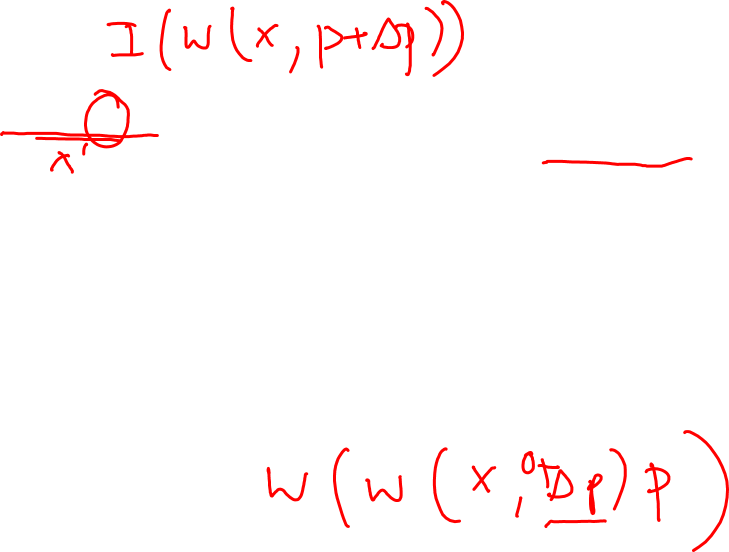 I(W(x, p+Δp))
x'
W(W(x, 0+Δp) p)